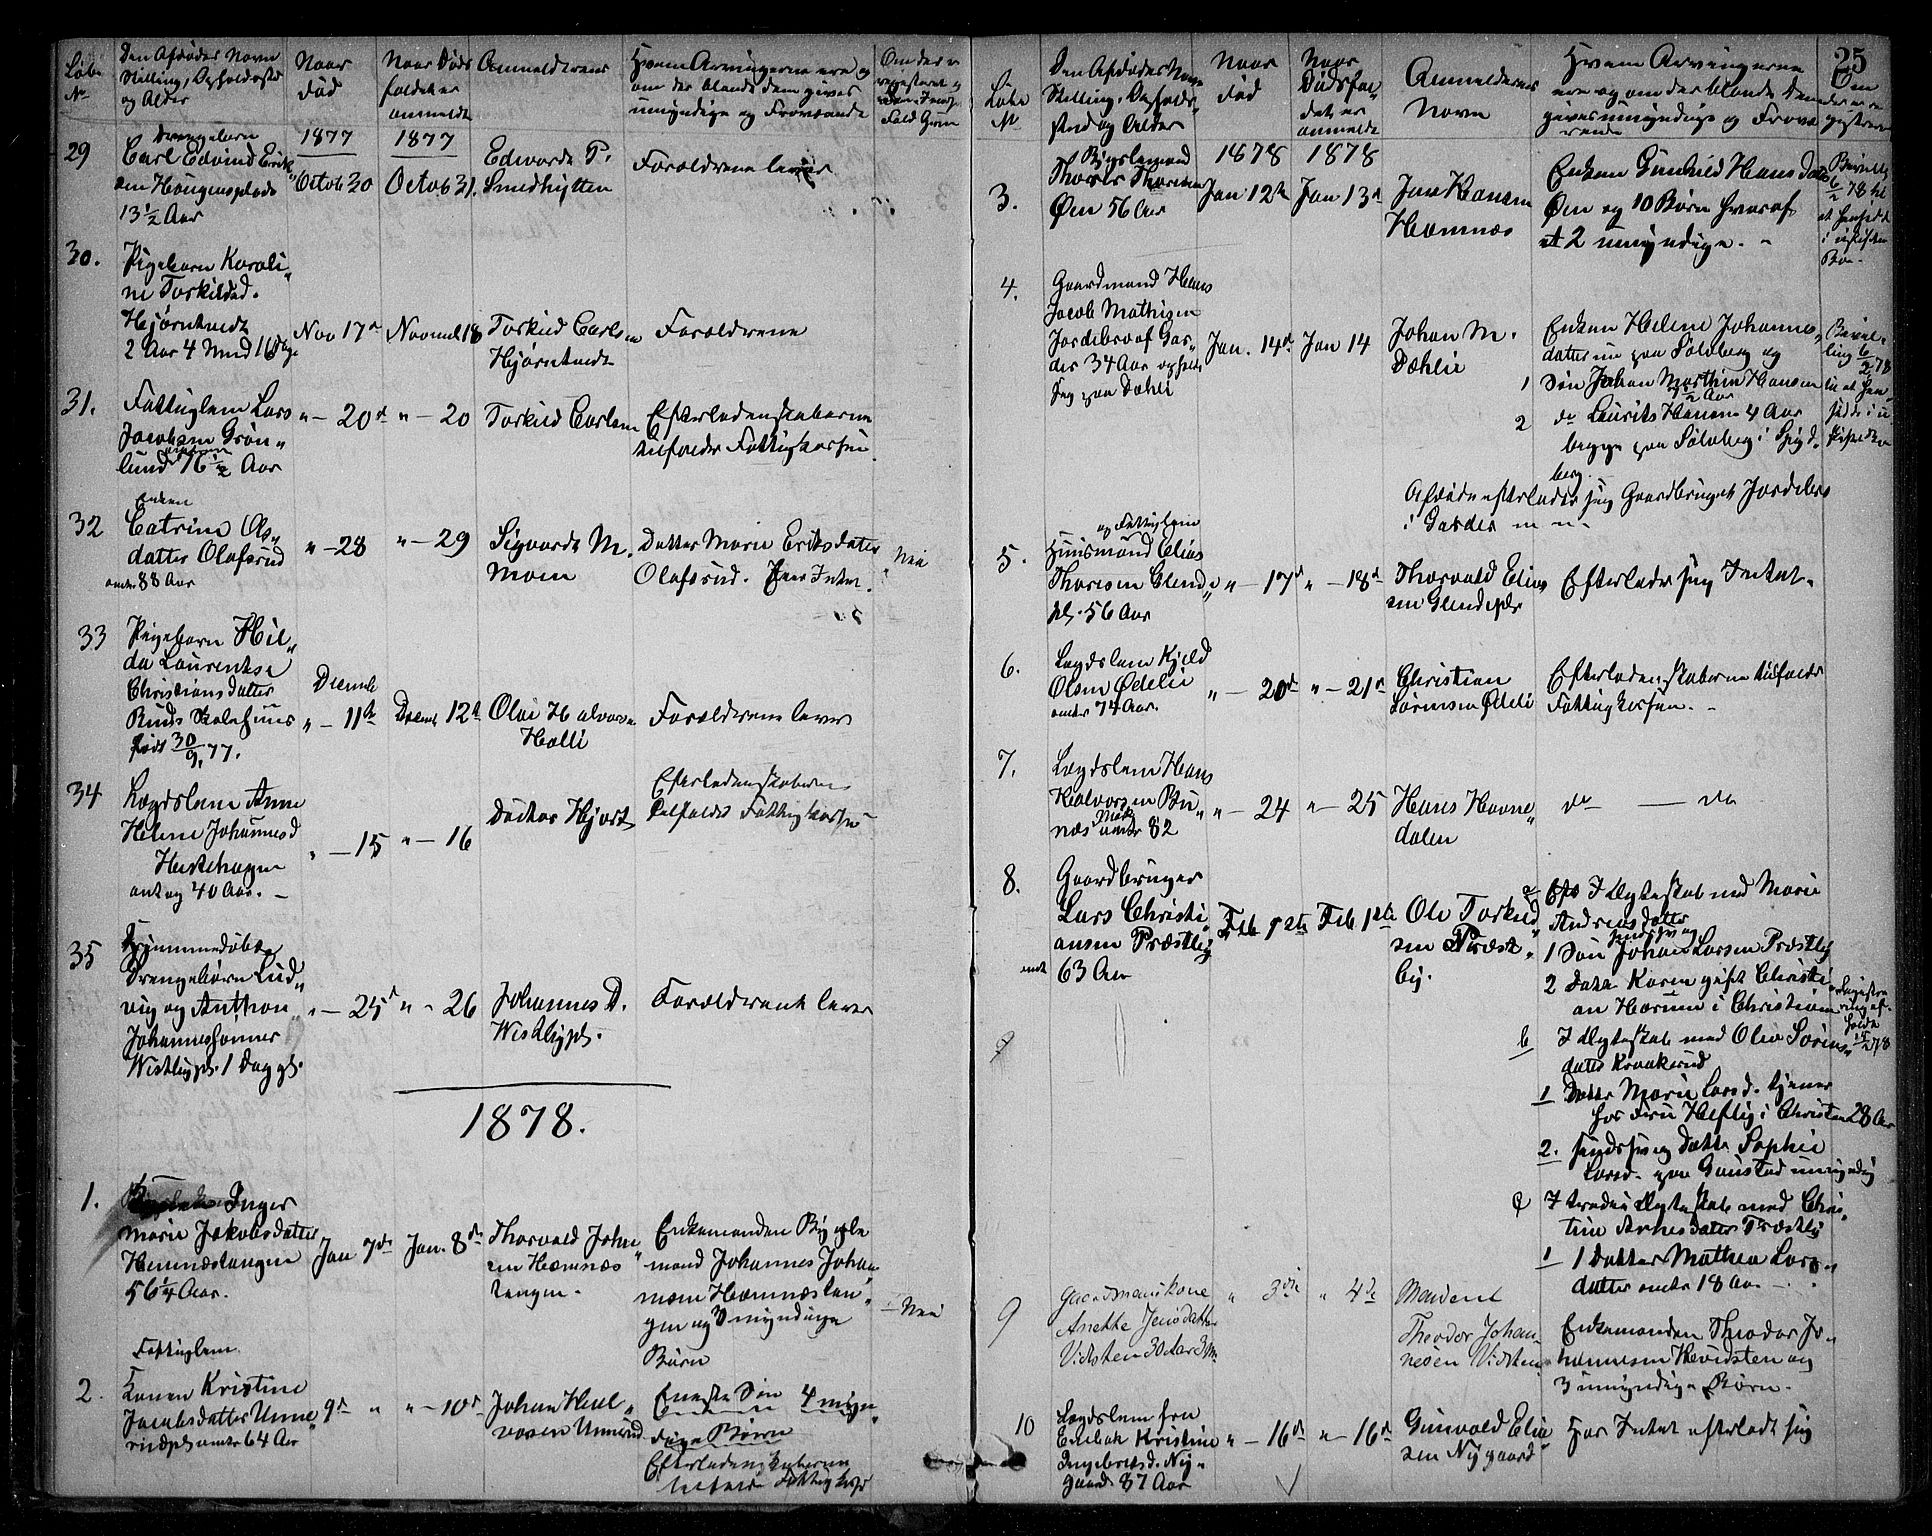 Løbe
No
Den Afdødes Navn
Stilling, Opholdssted
og Alder
Naar
Død
Naar Døds
faldet er
anmeldt
Anmelderens
Hvem Arvingerne ere og
om der blandt dem gives
umyndige og Fraværende
Om der er
registreret
29
Drengebarn
Carl Edvind Erik
sen Haugensplads
13½ Aar
1877
Octob 30
1877
Octob 31.
Edvardt P.
Smedhytten
Forældrene lever
30.
Pigebarn Karoli„
ne Torkildsd.
Hjørntvedt
2 Aar 4 Mnd 16 Dage
Nov 17de
Novemb 18
Torkild Carlsen
Hjørntvedt
Forældrene
31.
Fattiglem Lars
Jacobsen Grøn„
lund 76½ Aar
„ – 20de
„ – 20
Torkild Carlsen
Efterladenskaberne
tilfalder Fattigkassen
32
Enken
Catrine Ols„
datter Olafsrud
omtr 88 Aar
„ – 28
„ – 29
Sigvardt M.
Moen
Datter Marie Eriksdatter
Olafsrud. Eier Intet.
Nei
33
Pigebarn Hil„
da Laurentse
Christiansdatter
Ruds Skolehuus
født 30/9 77.
Decemb
„ – 11te
Decemb 12te
Olai Halvors„
Hælli
Forældrene lever
34
Lægdslem Anne
Helene Johannesd
Hestehagen
ant og 40 Aar. –
„ – 15
„ – 16
Doctor Hjort
Efterladenskaberne
tilfalder Fattigkassen
35
Hjemmedøbte
Drengebørn Lud„
vig og Anthon
Johannessønner
Wistbypl. 1 Dag gl.
„ – 25de
„ – 26
Johannes D.
Wistbypl.
Forældrene lever
1878.
1.
Inger
Marie Jakobsdatter
Hemnæstangen
56¼ Aar.
Jan 7de
Jan. 8de
Thorvald Johan
sen Hæmnæs
tangen.
Enkemanden Bygsel
mand Johannes Johan
nesen Hæmnæstan„
gen og 3 myndige
Børn
Nei
2.
Fattiglem
Konen Kristine
Jacobsdatter Unne
rudpl. omtr 64 Aar
9de „
„ – 10de
Johan Hal„
vorsen Unnerud
Eneste Søn 4 myn„
dige Børn
Efterladenskaberne
tilfalder Fattigkass
25
Løbe
No
Den Afdødes Navn
Stilling, Opholds„
sted og Alder
Naar
Død
Naar
Dødsfal„
det er
anmeldt
Anmelderens
Navn
Hvem Arvingerne
ere og om der blandt dem
gives umyndige og Fravæ
rende
Om
der er re
gistreret
3.
Bygselmand
Thores Thoresen
Øen 56 Aar
1878
Jan 12te
1878
Jan 13de
Jens Hansen
Hæmnæs
Enken Gunhild Hansdatter
Øen og 10 Børn hvoraf
2 umyndige. –
Bevilling
6/2 78 til
at hensidde
i uskiftet
Bo.
4.
Gaardmand Hans
Jacob Mathisen
Jordebro af Gar„
der 34 Aar ophold
sig paa Dæhli
Jan. 14de
Jan 14
Johan M.
Dæhlie
Enken Helene Johannes„
datter nu paa Sølvberg og
1 Søn Johan Marthin Hansen
½ Aar
2 do Laurits Hansen 4 Aar
begge paa Sølvberg i Spyd„
berg.
Afdøde efterlader sig Gaardbruget Jordebro
i Garder m m.
Bevil„
ling 6/2 78
til at hen„
sidde i u„
skiftet Bo
5.
og Fattiglem
Huusmand Elias
Thoresen Glende
pl. 56 Aar
„ – 17de
„ – 18de
Thorvald Elias
sen Glendepl
Efterlader sig Intet.
6.
Lægdslem Kjeld
Olsen Ødelie
omtr 74 Aar.
„ – 20de
„ – 21de
Christian
Sørensen Ødeli
Efterladenskaberne tilfalder
Fattigkassen. –
7.
Lægdslem Hans
Halvorsen Bu„
næs omtr 82
„ – 24
„ – 25
Hans Havne„
dalen
do — do
8.
Gaardbruger
Lars Christi„
ansen Præstby
omtr 63 Aar
Feb 1ste
Feb 1ste
Ole Torkild
sen Præst„
by.
a I Ægteskab med Marie
Andreasdatter
1 Søn Johan Larsen Præstby
2 Datter Karen gift Christi„
an Hærum i Christiania
b I Ægteskab med Olea Sørens
datter Kraakerud
1 Datter Marie Larsd. tjener
hos Fru Heftig i Christiania 28 Aar
2. sindssvag Datter Sophie
Larsd. paa Gaustad umyndig
c I tredie Ægteskab med Chris„
tine Arnesdatter Præstby
1 1 Datter Mathea Lars„
datter omtr 18 Aar. –
Registre
ring af„
holdt
15/2 78
9
Gaardmandskone
Anette Jensdatter
Vidsten 30 Aar 3 M
„ 3die
„ 4de
Manden
Theodor Johan„
nesen Vidsten
Enkemanden Theodor Jo„
hannesen Hvidsten og
3 umyndige Børn.
10
Lægdslem fra
Enebak Kristine
Ingebretsd. Ny„
gaard 87 Aar
„ – 16de
„ – 16de
Gunvald Elia
sen Nygaard
Har Intet efterladt sig